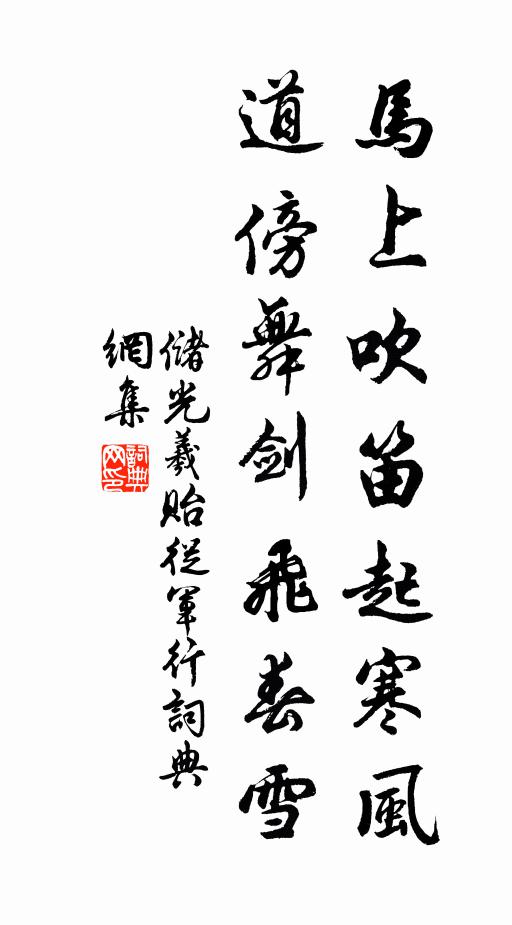 馬上吹笛起寒風
道傍舞劍飛春雪
儲光羲貽從軍行詞典
網集
詞典網印